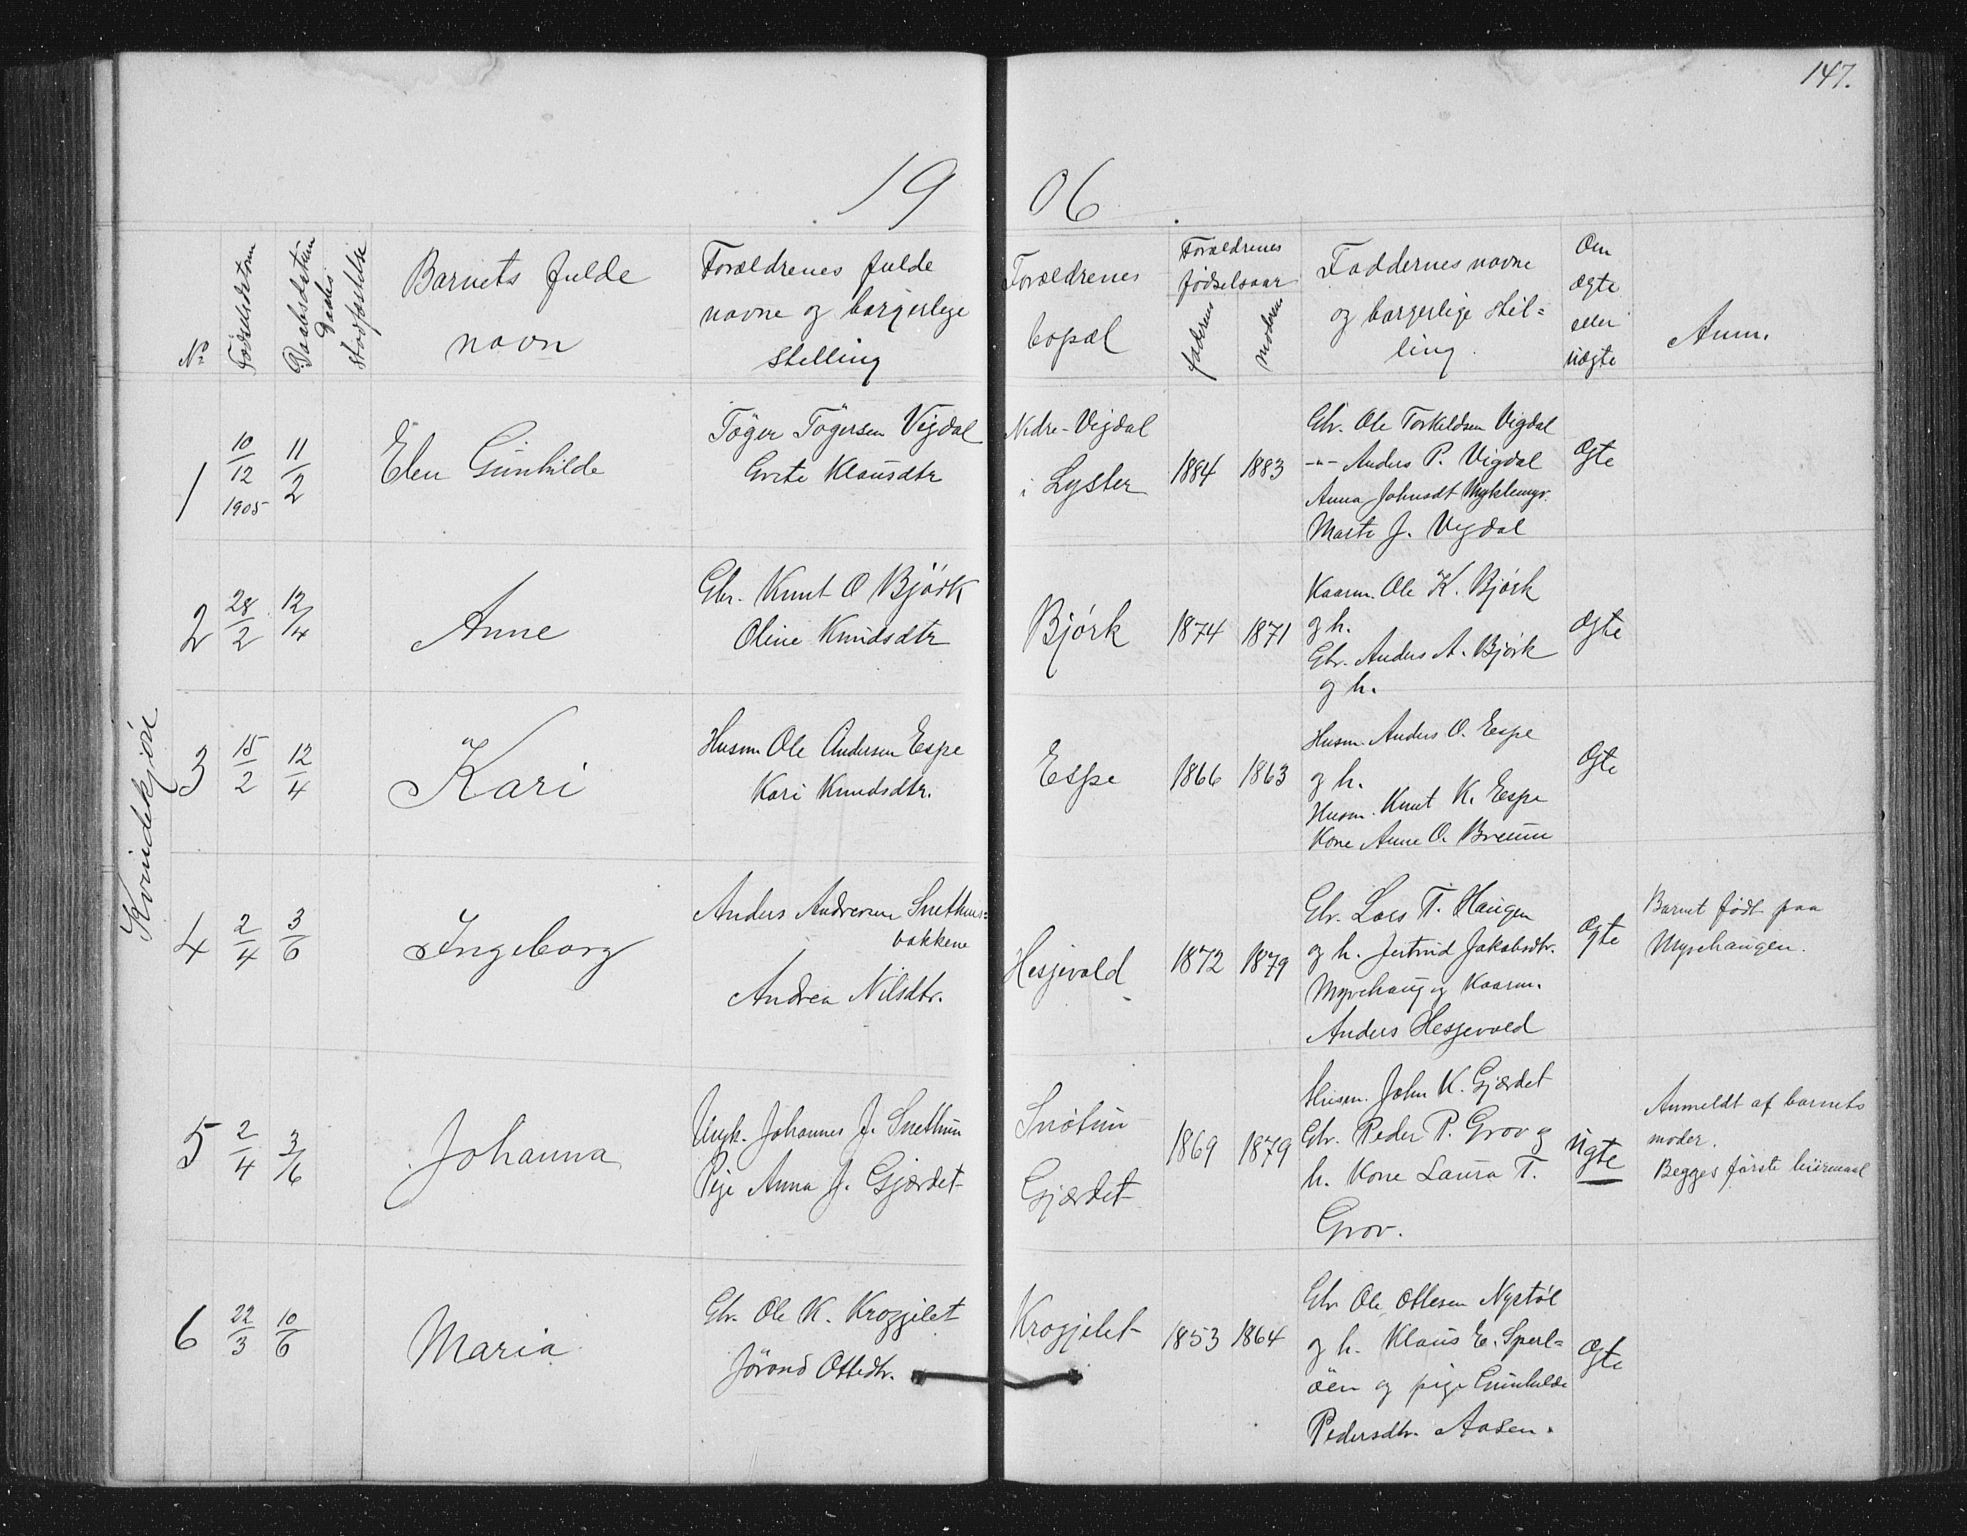 147.
1906
Kvindekjön
No
Fødselsdatum
Daabsdatum
Daabs
Stadfæstelse
Barnets fulde
navn
Forældrenes fulde
navne og borgerlige
stilling
Forældrenes
bopæl
Forældrenes
fødselsaar
faderens
moderens
Faddernes navne
og borgerlige stil-
ling.
Om
ægte
eller
uægte
Anm.
1
10/12 1905
11/2
Elen Günhilde
Töger Tögersen Vigdal
Grete Klausdtr
Nedre-Vigdal
i Lyster
1884
1883
Gbr. Ole Torkeldsen Vigdal
-"- Anders P. Vigdal
Anna Johnsdt Myklemyr.
Marte J. Vigdal
Ægte
2
28/2
12/4
Anne
Gbr. Knut O Bjørk
Oline Knudsdtr
Bjørk
1874
1871
Kaarm. Ole K. Bjørk
og h.
Gbr. Anders A. Bjørk
og h.
Ægte
3
15/2
12/4
Kari
Husm Ole Andersen Espe
Kari Knudsdtr.
Espe
1866
1863
Husm. Anders O. Espe
og h.
Husm. Knut K. Espe
Kone Anne O. Breüm
Ægte
4
2/4
3/6
Ingeborg
Anders Andersen Snethuns-
bakkene
Andrea Nilsdtr.
Hesjevold
1872
1879
Gbr. Lars T. Haugen
og h. Jertrud Jakobsdtr.
Myrehaug og Kaarm.
Anders Hesjevold
Ægte
Barnet født paa
Myrehaugen.
5
2/4
3/6
Johanna
Ungk. Johannes J. Snethun
Pige Anna J. Gjærdet
Snötun
Gjærdet
1869
1879
Husm. John K. Gjærdet
Gbr. Peder P. Grov og
h. Kone Laura T.
Grov.
uægte
Anmeldt af barnets
moder.
Begges første leiermaal
6
22/3
10/6
Maria
Gbr. Ole K. Krogjilet
Jørand Ottedtr.
Krogjilet
1853
1864
Gbr Ole Ottesen Nystöl
og h. Klaus E. Sperl-
öen og pige Gunhilde
Pedersdtr. Aasen.
Ægte